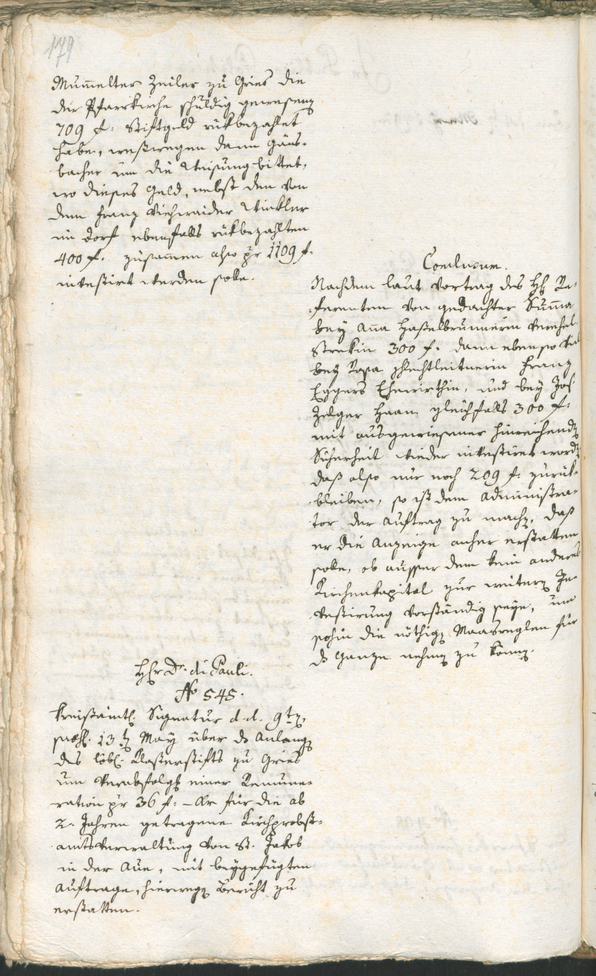 179
Mumelter Zeiler zu Gries die
der Pfarrkirche schuldig gewesene
709 f. Stiftgeld rükbezahlet
habe, weßwegen dann Gäns-
bacher um die Weisung bittet,
wo dieses Geld, nebst den von
dem Franz Viehweider Winkler
im Dorf ebenfalls rükbezahlten
400 f. zusammen also pr 1109 f.
investirt werden solle.
Conclusum.
Nachdem laut Vortrag des H. Re-
ferenten von gedachter Summa
bey Anna Haselbrunnerin verehel.
300 f. dann ebenso
bey Rosa Franz
Eggers Ehewirthin, und bey Jos.
Zelger Haan gleichfalls 300 f.
mit ausgewiesener hinreichender
Sicherheit wieder investiret worden
daß also nur noch 209 f. zurük-
bleiben, so ist dem Administra-
tor der Auftrag zu machen, daß
er die Anzeige anher erstatten
solle, ob ausser dem kein anderes
Kirchenkapital zur weitern In-
vestirung vorständig seye, um
sohin die nöthigen Maasreglen für
das Ganze nehmen zu können.
Hr. Dr. di Pauli.
No 545.
Kreisämtl. Signatur d. d. 9ten
13ten May über das Anlangen
des löbl. Klosterstifts zu Gries
um Verabfolg einer Remune-
ration pr 36 f. – Xr für die ab
2. Jahren getragene Kirchprobst-
amtsverwaltung von St. Jakob
in der Aue, mit beygefügten
Auftrage, hierwegen Bericht zu
erstatten.